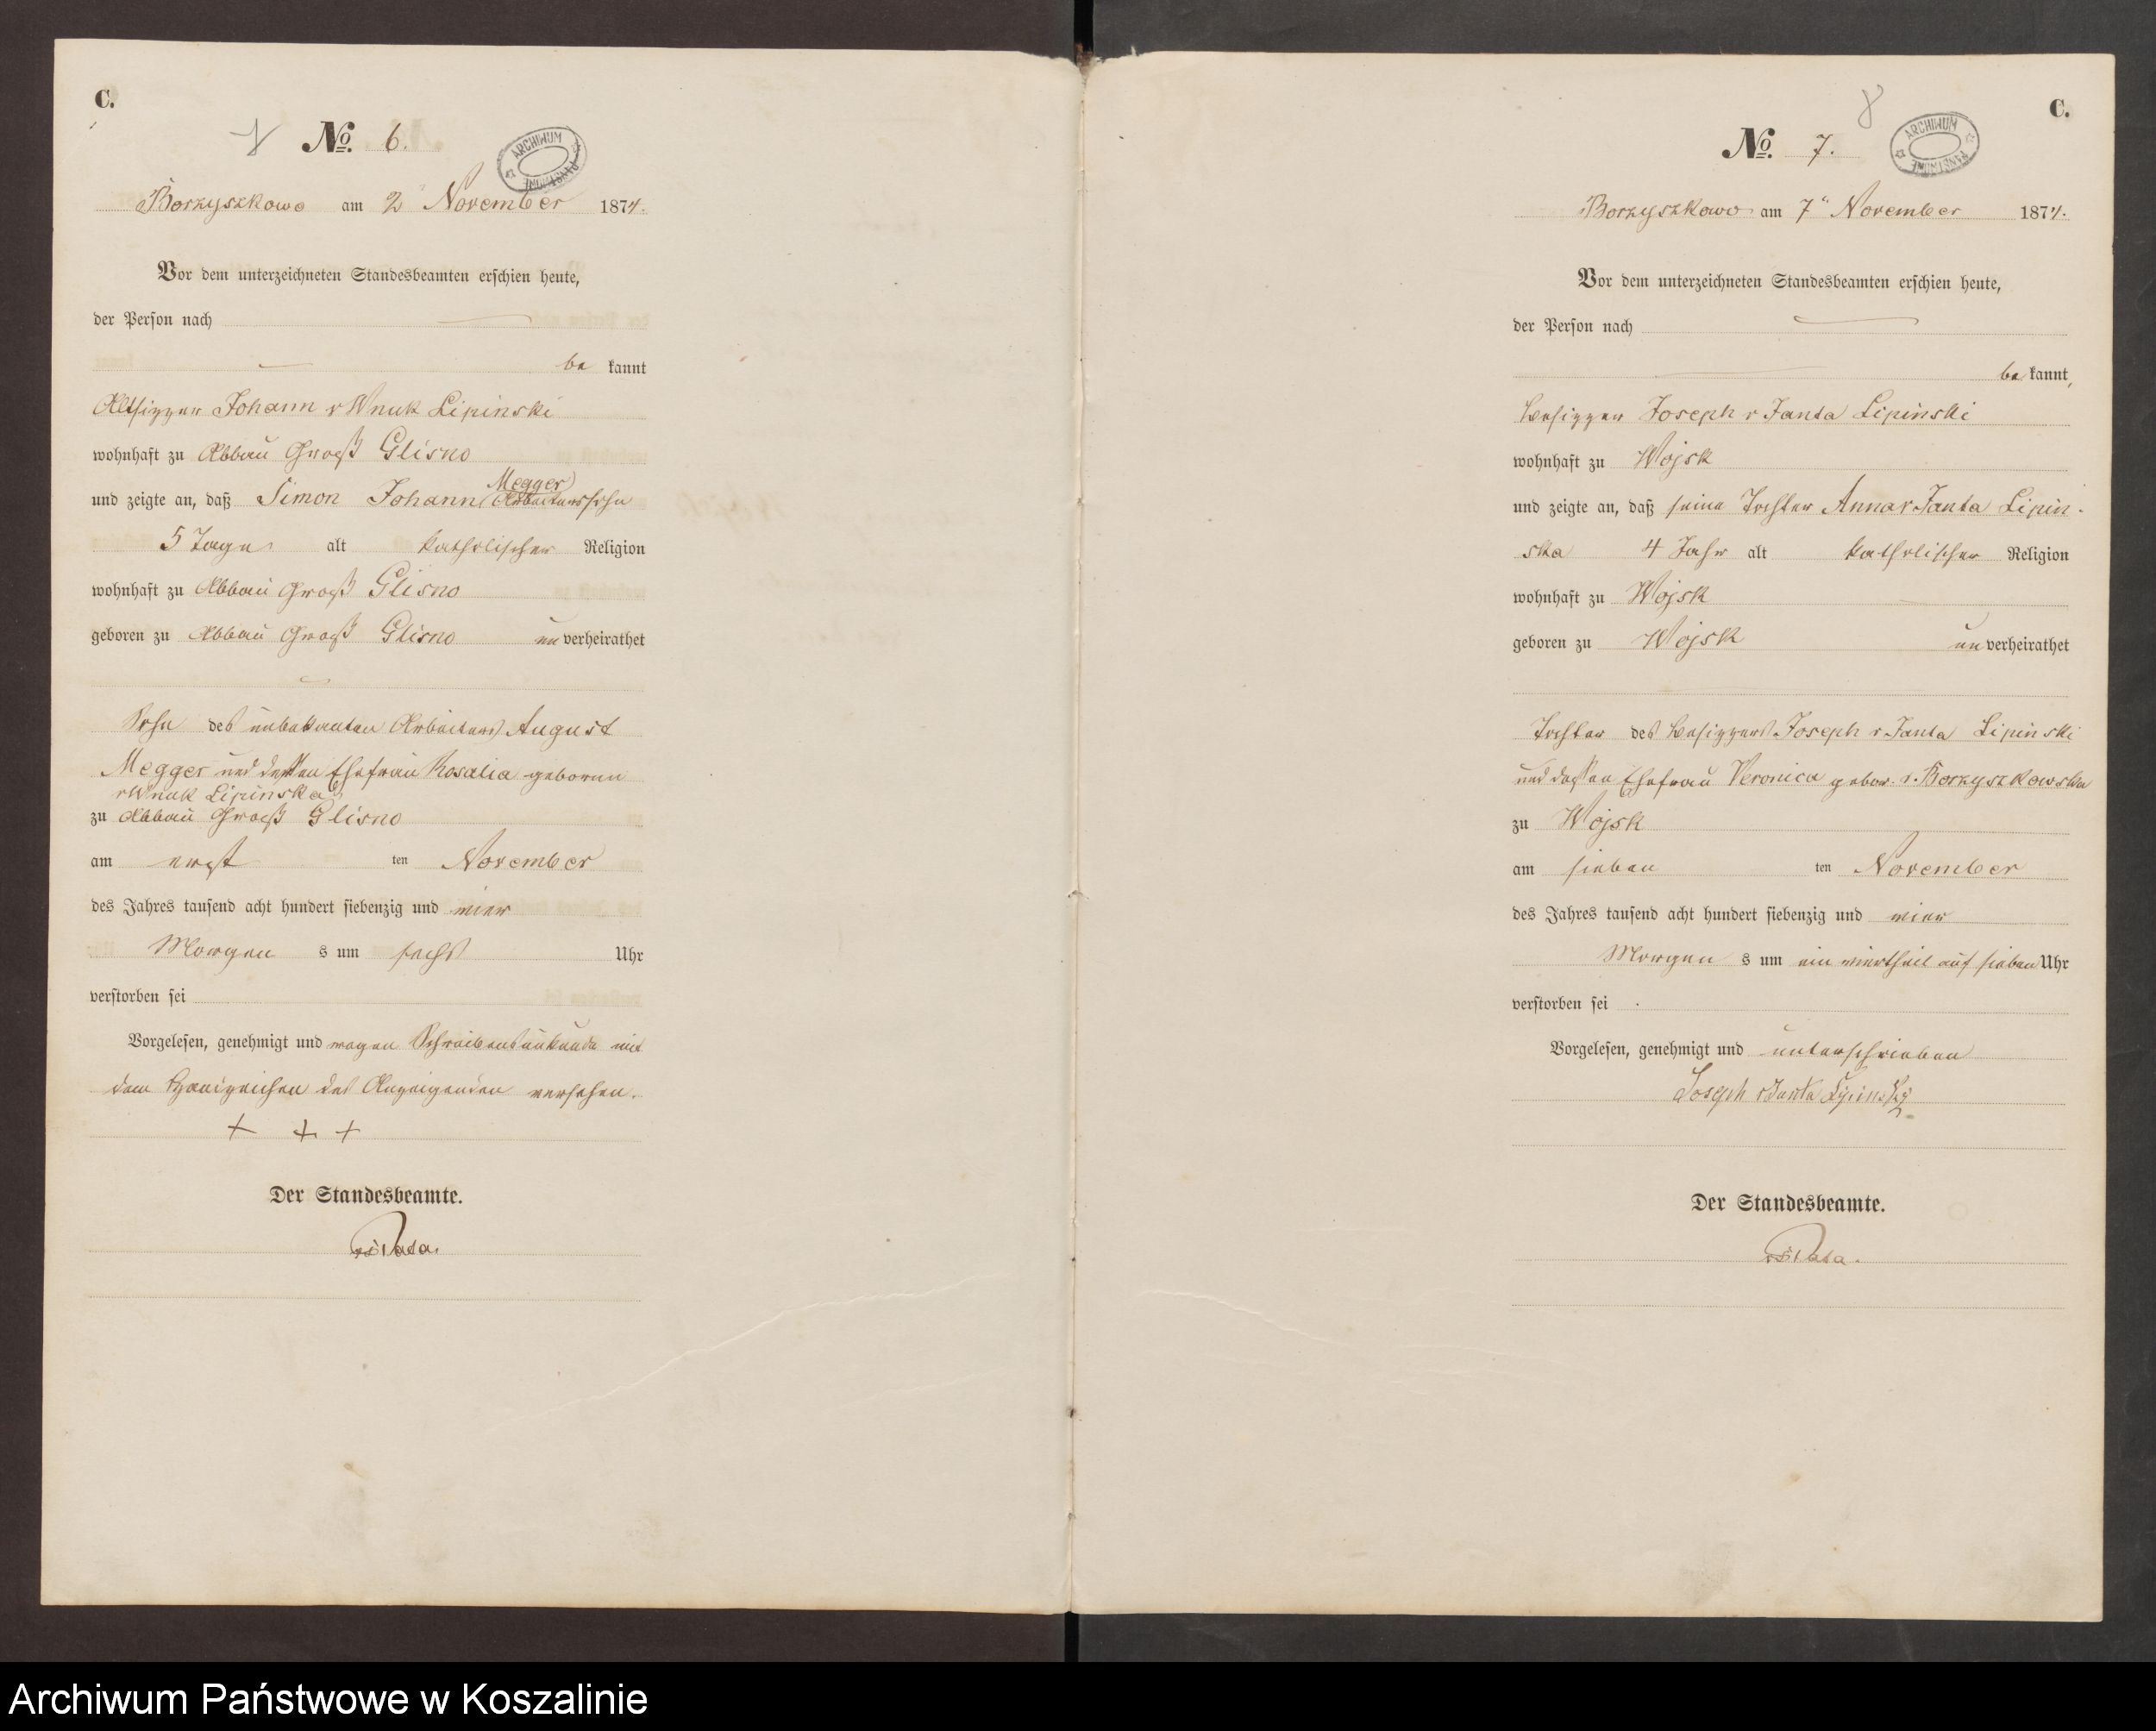 C.
No. 6.
ARCHIWUM PAŃSTWOWE
Borzyszkowo am 2 November 1874.
Vor dem unterzeichneten Standesbeamten erschien heute,
der Person nach
be kannt
Altsitzer Johann v Wnuk Lipinski
wohnhaft zu Abbau Groß Glisno
und zeigte an, daß Simon Johann Megger Arbeiterssohn
5 Tage alt katholischer Religion
wohnhaft zu Abbau Groß Glisno
geboren zu Abbau Groß Glisno un verheirathet
Sohn des Arbeiters August
Megger und dessen Ehefrau Rosalia geborene
v Wnuk Lipinska
zu Abbau Groß Glisno
am erst ten November
des Jahres tausend acht hundert siebenzig und vier
Morgen s um sechs Uhr
verstorben sei
Vorgelesen, genehmigt und wegen Schreibensunkunde mit
dem Handzeichen des Anzeigenden versehen.
+ + +
Der Standesbeamte.
C.
No. 7.
8
ARCHIWUM PAŃSTWOWE
Borzyszkowo am 7" November 1874.
Vor dem unterzeichneten Standesbeamten erschien heute,
der Person nach
be kannt,
Besitzer Joseph v Janta Lipinski
wohnhaft zu Wojsk
und zeigte an, daß seine Tochter Anna v Janta Lipin-
ska 4 Jahr alt katholischer Religion
wohnhaft zu Wojsk
geboren zu Wojsk un verheirathet
Tochter des Besitzers Joseph v Janta Lipinski
und dessen Ehefrau Veronica gebor. v. Borzyszkowska
zu Wojsk
am sieben ten November
des Jahres tausend acht hundert siebenzig und vier
Morgen s um ein viertheil auf sieben Uhr
verstorben sei .
Vorgelesen, genehmigt und unterschrieben
Joseph v Janta Lipinski
Der Standesbeamte.
Archiwum Państwowe w Koszalinie